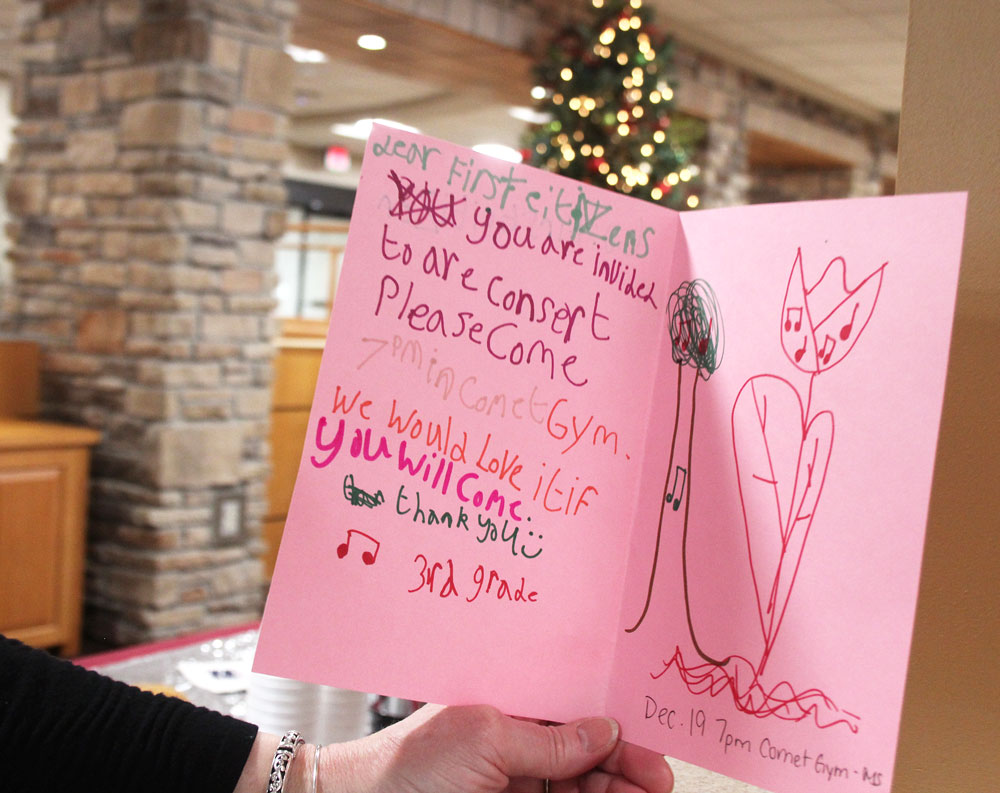 Dear First citizens
You you are invided
to are consert
Please Come
7pm in Comet Gym.
We would Love it if
you will come.
thank you
3rd grade
Dec. 19 7pm Comet Gym - BMS